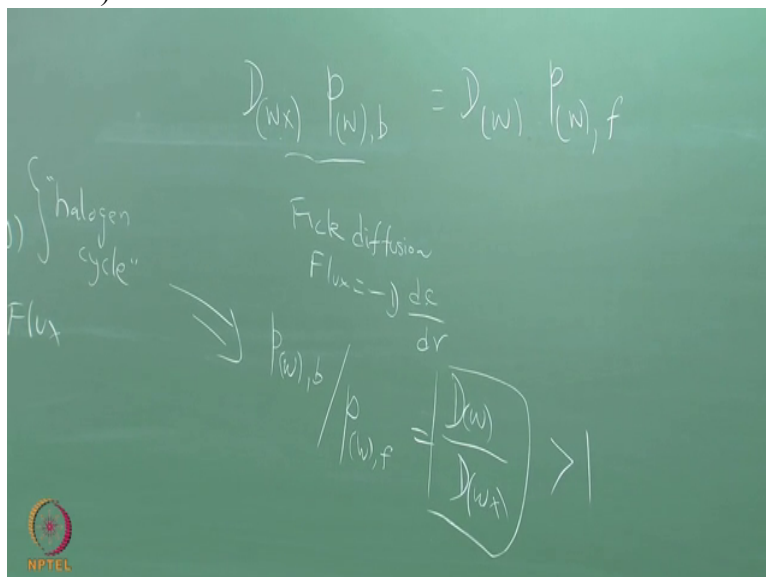 )
D(wx) P(w),b = D(w) P(w),f
) } "halogen
cycle"
Flux
Fick diffusion
Flux = -D dc/dr
P(w),b / P(w),f = D(w)/D(wx) > 1
NPTEL